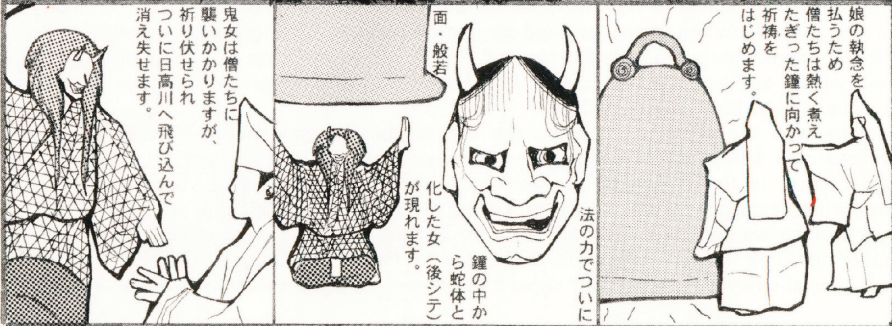 娘の執念を
払うため
僧たちは熱く煮え
たぎった鐘に向かって
祈祷を
はじめます。
法の力でついに
鐘の中か
ら蛇体と
化した女（後シテ）
が現れます。
面・般若
鬼女は僧たちに
襲いかかりますが、
祈り伏せられ
ついに日高川へ飛び込んで
消え失せます。